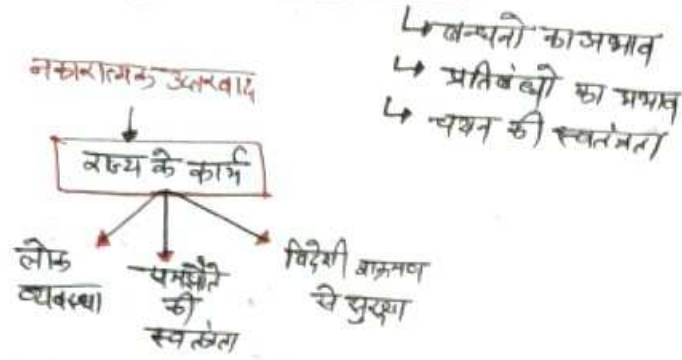 ↳ बन्धनो का अभाव
↳ प्रतिबंधो का अभाव
↳ चयन की स्वतंत्रता
नकारात्मक उदारवाद
राज्य के कार्य
लोक
व्यवस्था
समझौते
की
स्वतंत्रता
विदेशी आक्रमण
से सुरक्षा